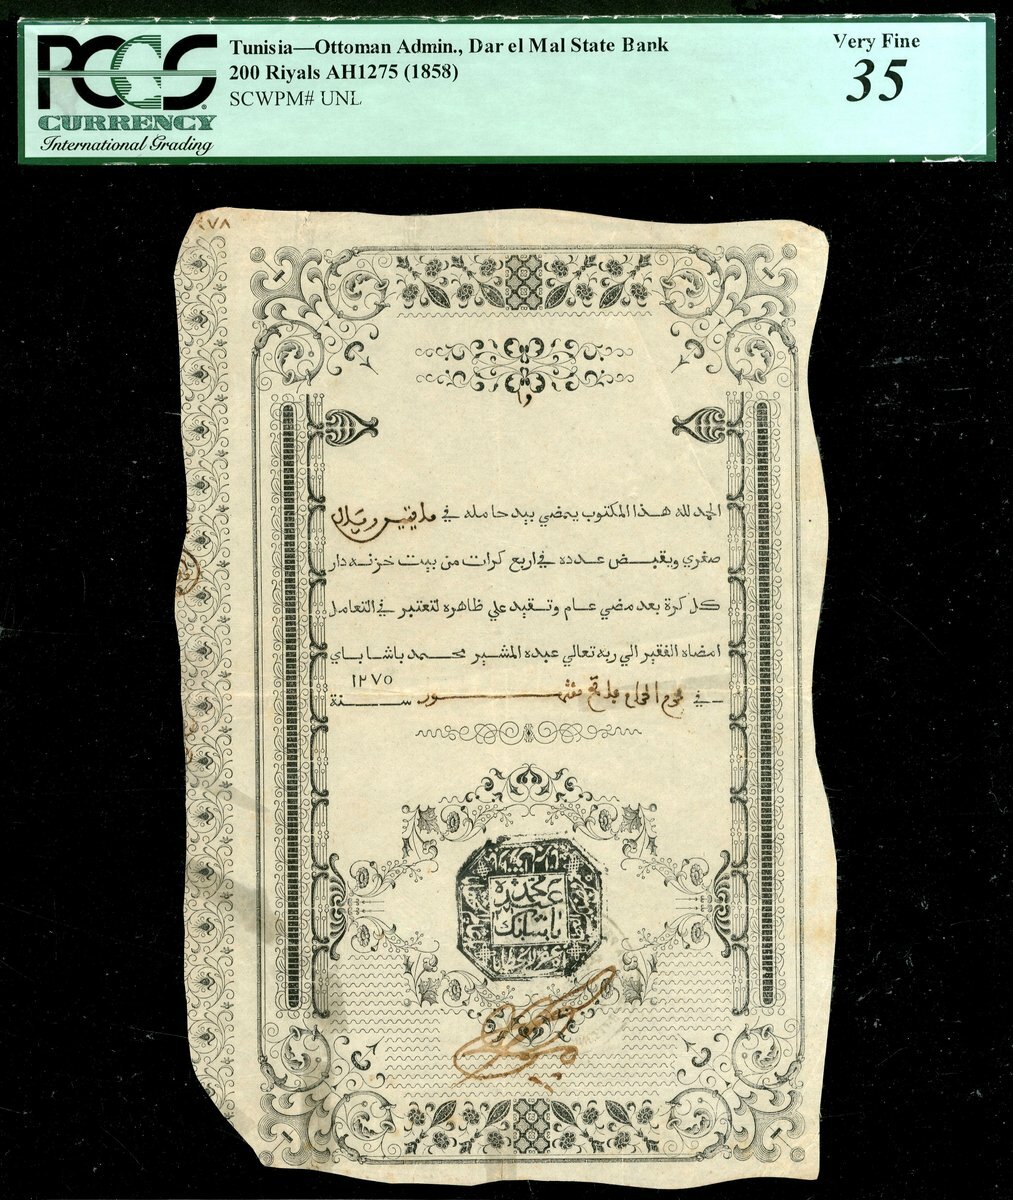 PCGS
CURRENCY
International Grading
Tunisia—Ottoman Admin., Dar el Mal State Bank
200 Riyals AH1275 (1858)
SCWPM# UNL
Very Fine
35
٧٨
الحمد لله هذا المكتوب يمضي بيد حامله في مايتين ريال
صغري ويقبض عدده في اربع كرات من بيت خزنه دار
كل كرة بعد مضي عام وتقيد علي ظاهره لتعتبر في التعامل
امضاه الفقير الي ربه تعالي عبده المشير محمد باشا باي
في محرم الحرام فاتح شهور سنة ١٢٧٥